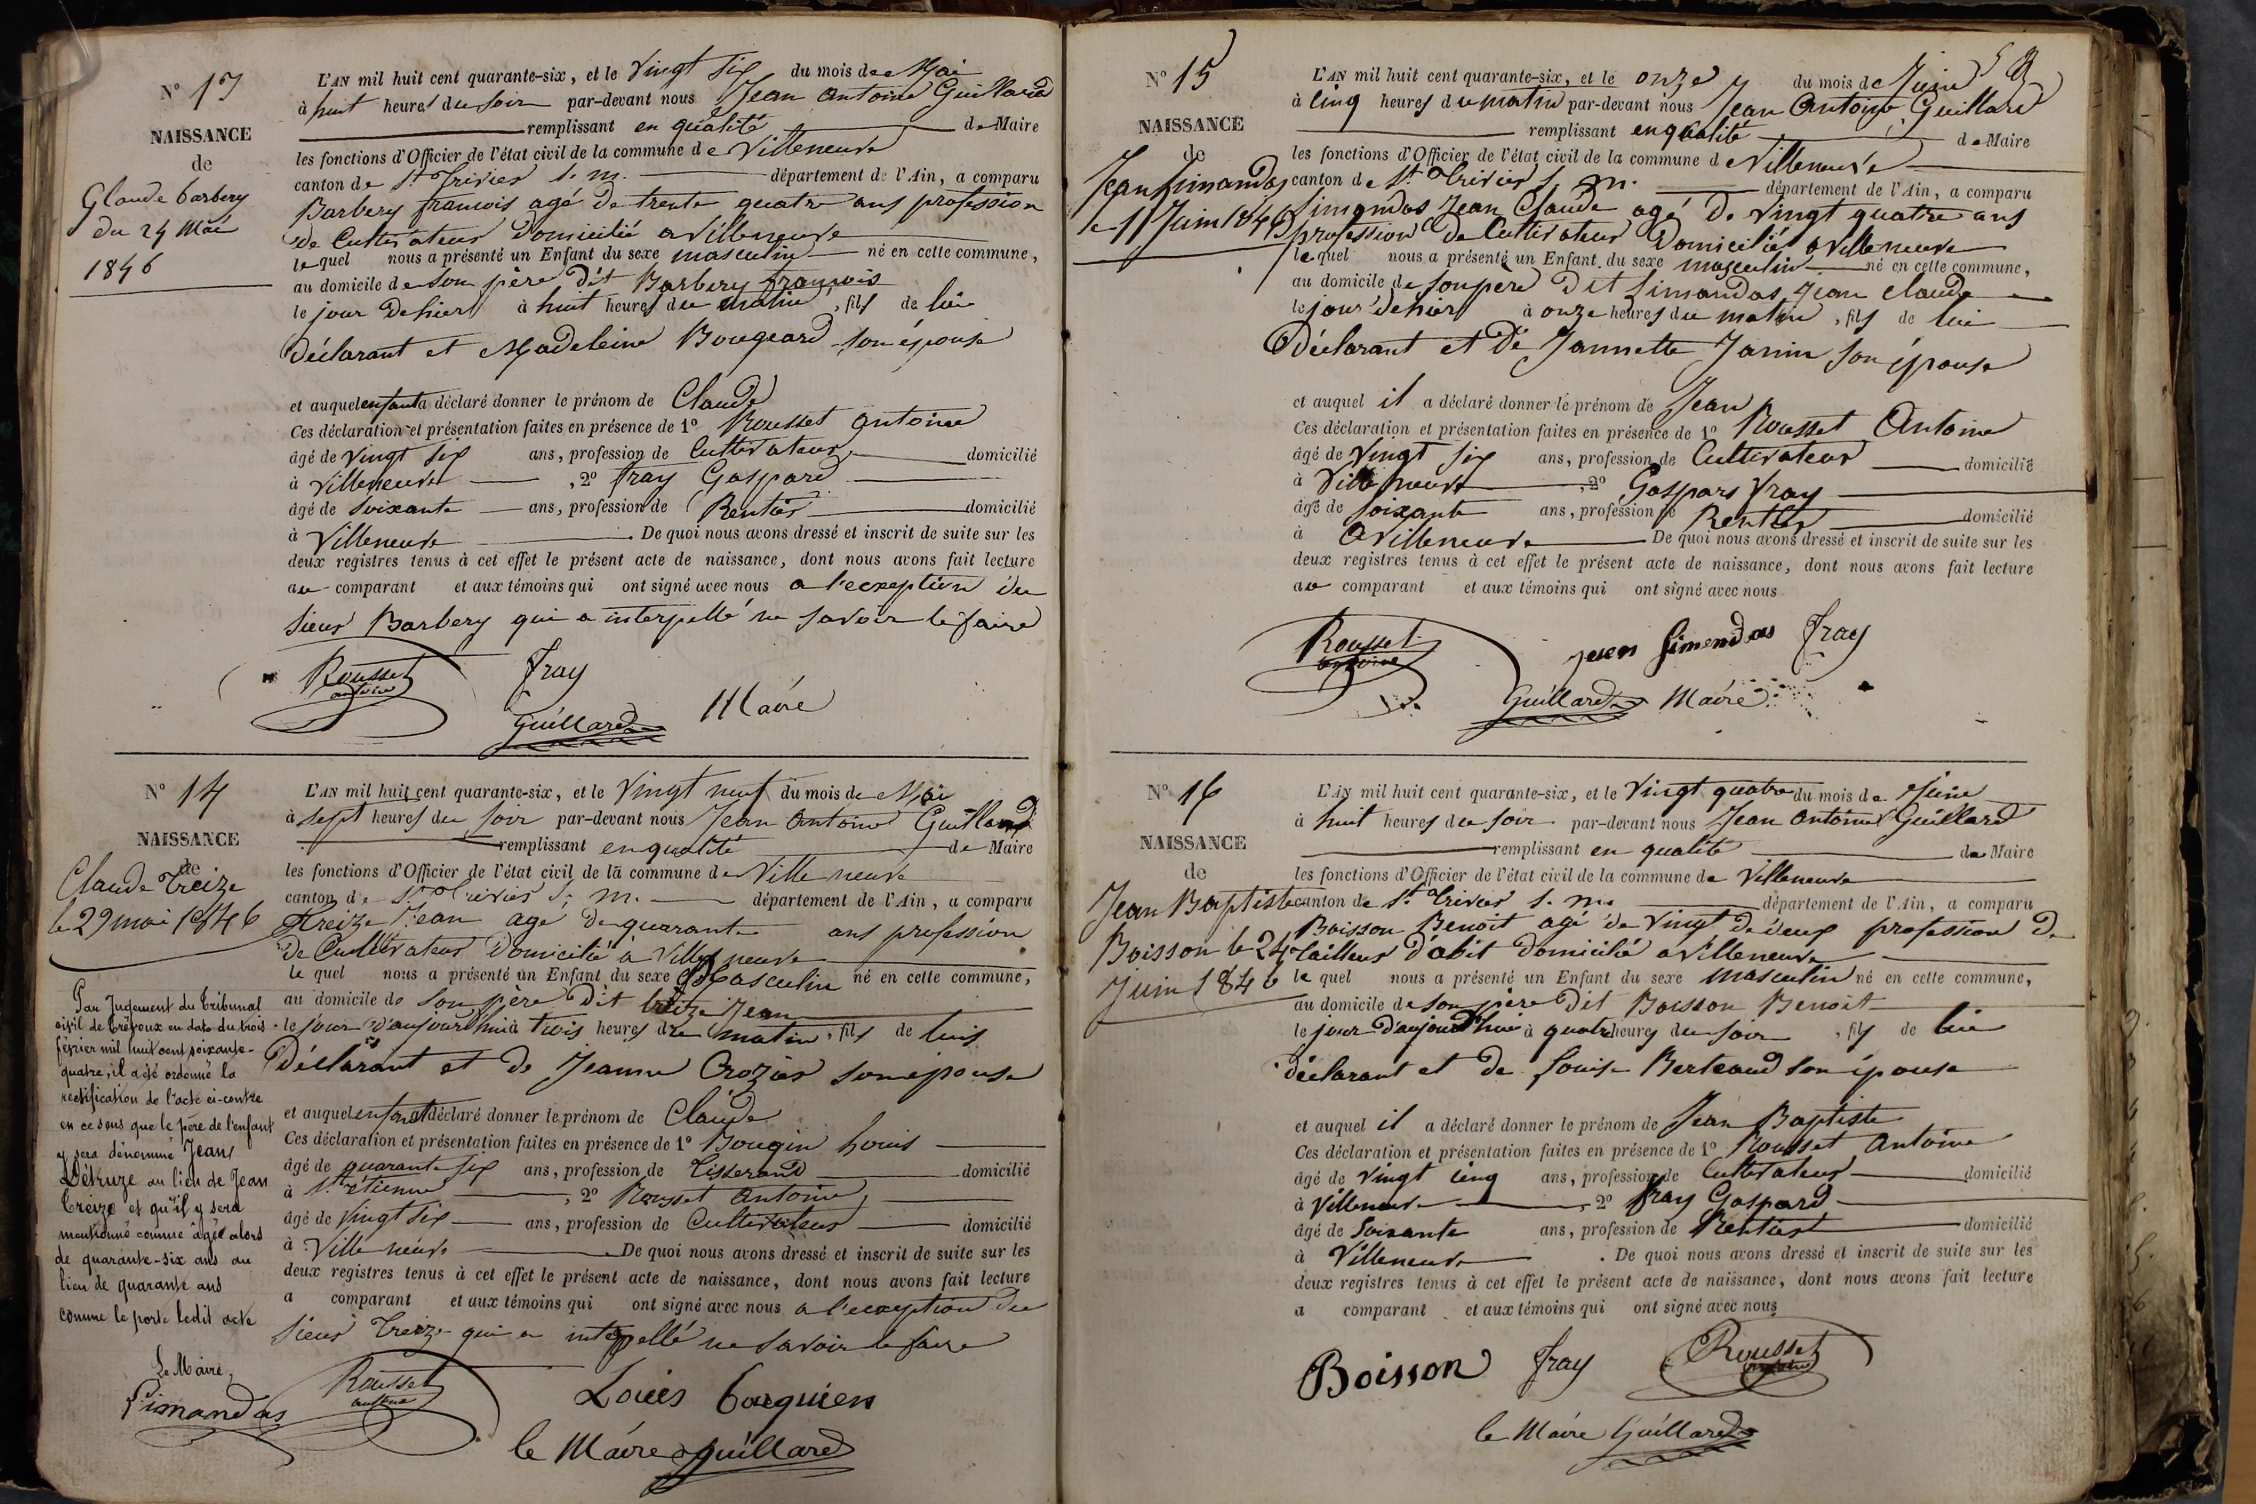 N° 13
NAISSANCE
de
Claude barbery
du 25 Mai
1846
L'AN mil huit cent quarante-six, et le Vingt six du mois de Mai
à huit heures du soir par-devant nous Jean Antoine Guillard
remplissant en qualité de Maire
les fonctions d'Officier de l'état civil de la commune de Villeneuve
canton de St Trivier s. m. département de l'Ain, a comparu
Barbery francois agé de trente quatre ans profession
de Cultivateur domicilié a Villeneuve
lequel nous a présenté un Enfant du sexe masculin né en cette commune,
au domicile de son père dit Barbery francois
le jour dehier à huit heures du matin, fils de lui
déclarant et Madeleine Bougeard son épouse
et auquel enfant a déclaré donner le prénom de Claude
Ces déclaration et présentation faites en présence de 1° Rousset antoine
âgé de vingt six ans, profession de Cultivateur domicilié
à Villeneuve, 2° fray Gaspard
âgé de soixante ans, profession de Rentier domicilié
à Villeneuve. De quoi nous avons dressé et inscrit de suite sur les
deux registres tenus à cet effet le présent acte de naissance, dont nous avons fait lecture
au comparant et aux témoins qui ont signé avec nous a l'exception du
sieur Barbery qui a interpellé ne savoir le faire
Rousset antoine fray
Guillard Maire
N° 14
NAISSANCE
de
Claude Treize
le 29 mai 1846
Par Jugement du Tribunal
civil de Trévoux en date du trois
février mil huit cent soixante-
quatre, il a été ordonné la
rectification de l'acte ci-contre
en ce sens que le père de l'enfant
y sera dénommé Jean
Détruze au lieu de Jean
Treize et qu'il y sera
mentionné comme âgé alors
de quarante-six ans au
lieu de quarante ans
comme le porte ledit acte
Le Maire,
Simandas
L'AN mil huit cent quarante-six, et le Vingt neuf du mois de Mai
à sept heures du soir par-devant nous Jean Antoine Guillard
remplissant en qualité de Maire
les fonctions d'Officier de l'état civil de la commune de Ville neuve
canton de St Trivier s. m. département de l'Ain, a comparu
Treize Jean agé de quarante ans profession
de Cultivateur domicilié à Ville neuve
le quel nous a présenté un Enfant du sexe Masculin né en cette commune,
au domicile de son père dit treize Jean
le jour d'aujourdhui à trois heures du matin, fils de luis
déclarant et de Jeanne Crozier son épouse
et auquel enfant a déclaré donner le prénom de Claude
Ces déclaration et présentation faites en présence de 1° Bougin Louis
âgé de quarante six ans, profession de Tisserand domicilié
à St. Etienne, 2° Rousset Antoine
âgé de vingt six ans, profession de Cultivateur domicilié
à Ville neuve. De quoi nous avons dressé et inscrit de suite sur les
deux registres tenus à cet effet le présent acte de naissance, dont nous avons fait lecture
a comparant et aux témoins qui ont signé avec nous a l'exception du
sieur Treize qui a interpellé ne savoir le faire
Rousset antoine Louis
le Maire Guillard
N° 15
NAISSANCE
de
Jean Simandas
le 11 Juin 1846
L'AN mil huit cent quarante-six, et le onze du mois de Juin
à cinq heures du matin par-devant nous Jean Antoine Guillard
remplissant en qualité de Maire
les fonctions d'Officier de l'état civil de la commune de Villeneuve
canton de St Trivier s. m. département de l'Ain, a comparu
Simandas Jean Claude agé de vingt quatre ans
profession de Cultivateur domicilié a Villeneuve
lequel nous a présenté un Enfant du sexe masculin né en cette commune,
au domicile de son père dit Simandas Jean claude
le jour dehier à onze heures du matin, fils de lui
déclarant et de Jannette Janin son épouse
et auquel il a déclaré donner le prénom de Jean
Ces déclaration et présentation faites en présence de 1° Rousset Antoine
âgé de vingt six ans, profession de Cultivateur domicilié
à Villeneuve, 2° Gaspard fray
âgé de soixante ans, profession de Rentier domicilié
à a Villeneuve De quoi nous avons dressé et inscrit de suite sur les
deux registres tenus à cet effet le présent acte de naissance, dont nous avons fait lecture
au comparant et aux témoins qui ont signé avec nous
Rousset antoine Jean Simendas fray
Guillard Maire
N° 16
NAISSANCE
de
Jean Baptiste
Boisson le 24
Juin 1846
L'AN mil huit cent quarante-six, et le Vingt quatre du mois de Juin
à huit heures du soir par-devant nous Jean Antoine Guillard
remplissant en qualité de Maire
les fonctions d'Officier de l'état civil de la commune de Villeneuve
canton de St Trivier s. m. département de l'Ain, a comparu
Boisson Benoit agé de vingt deux profession de
Tailleur d'abit domicilié a Villeneuve
le quel nous a présenté un Enfant du sexe masculin né en cette commune,
au domicile de son père dit Boisson Benoit
le jour d'aujourd'hui à quatre heures du soir, fils de lui
déclarant et de Louise Berteaud son épouse
et auquel il a déclaré donner le prénom de Jean Baptiste
Ces déclaration et présentation faites en présence de 1° Rousset Antoine
âgé de vingt cinq ans, profession de Cultivateur domicilié
à Villeneuve, 2° fray Gaspard
âgé de Soixante ans, profession de Rentier domicilié
à Villeneuve. De quoi nous avons dressé et inscrit de suite sur les
deux registres tenus à cet effet le présent acte de naissance, dont nous avons fait lecture
a comparant et aux témoins qui ont signé avec nous
Boisson fray Rousset antoine
le Maire Guillard